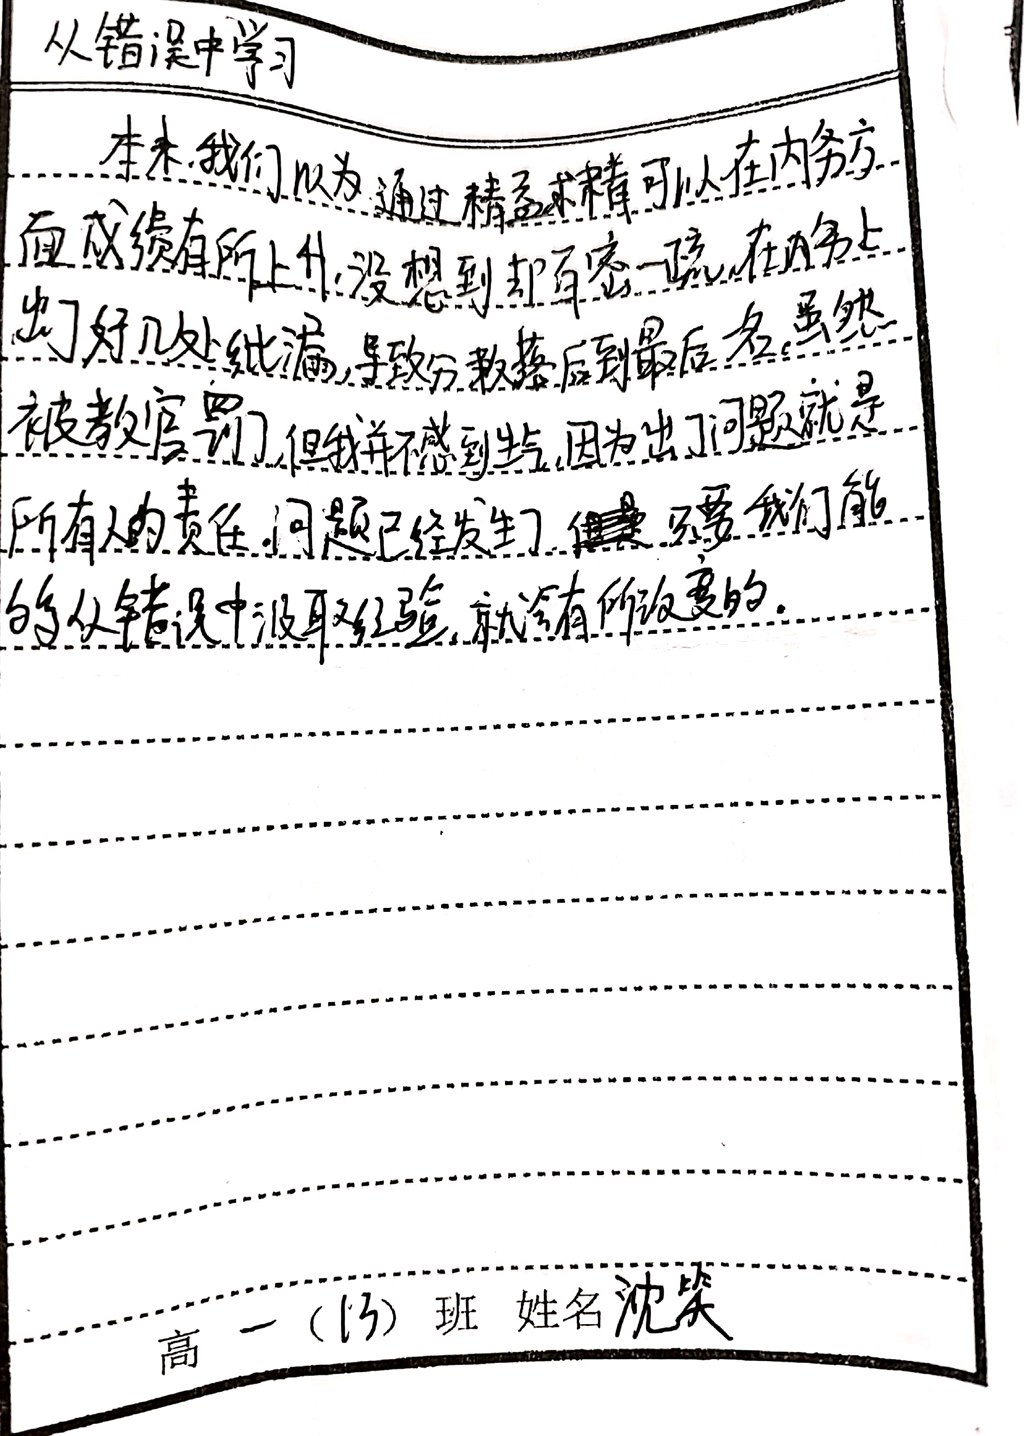 从错误中学习
本来,我们以为通过精益求精可以在内务方
面成绩有所上升,没想到却百密一疏,在内务上
出了好几处纰漏,导致分数落后到最后一名。虽然
被教官罚了,但我并不感到生气,因为出了问题就是
所有人的责任。问题已经发生了,只要我们能
够从错误中汲取经验,就会有所改变的。
高一(13)班 姓名沈笑